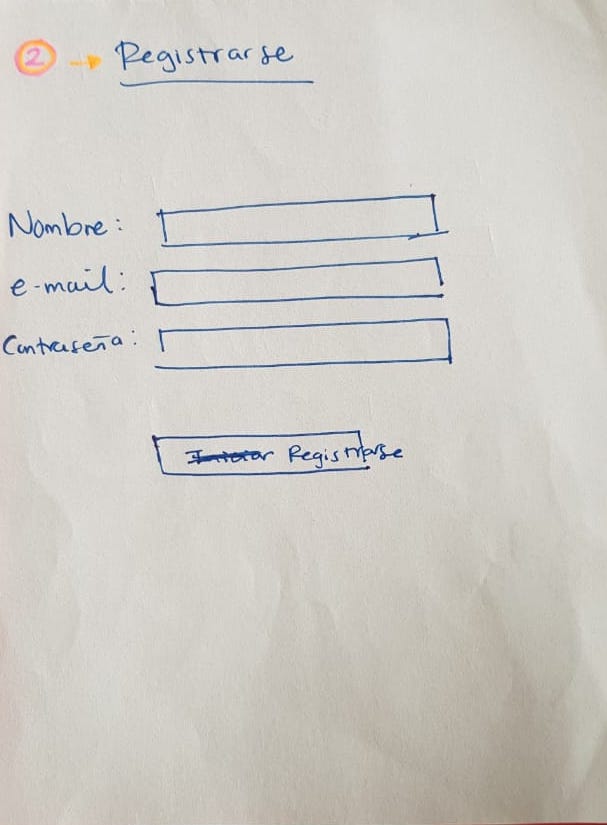 2 → Registrarse
Nombre:
e-mail:
Contraseña:
Registrarse